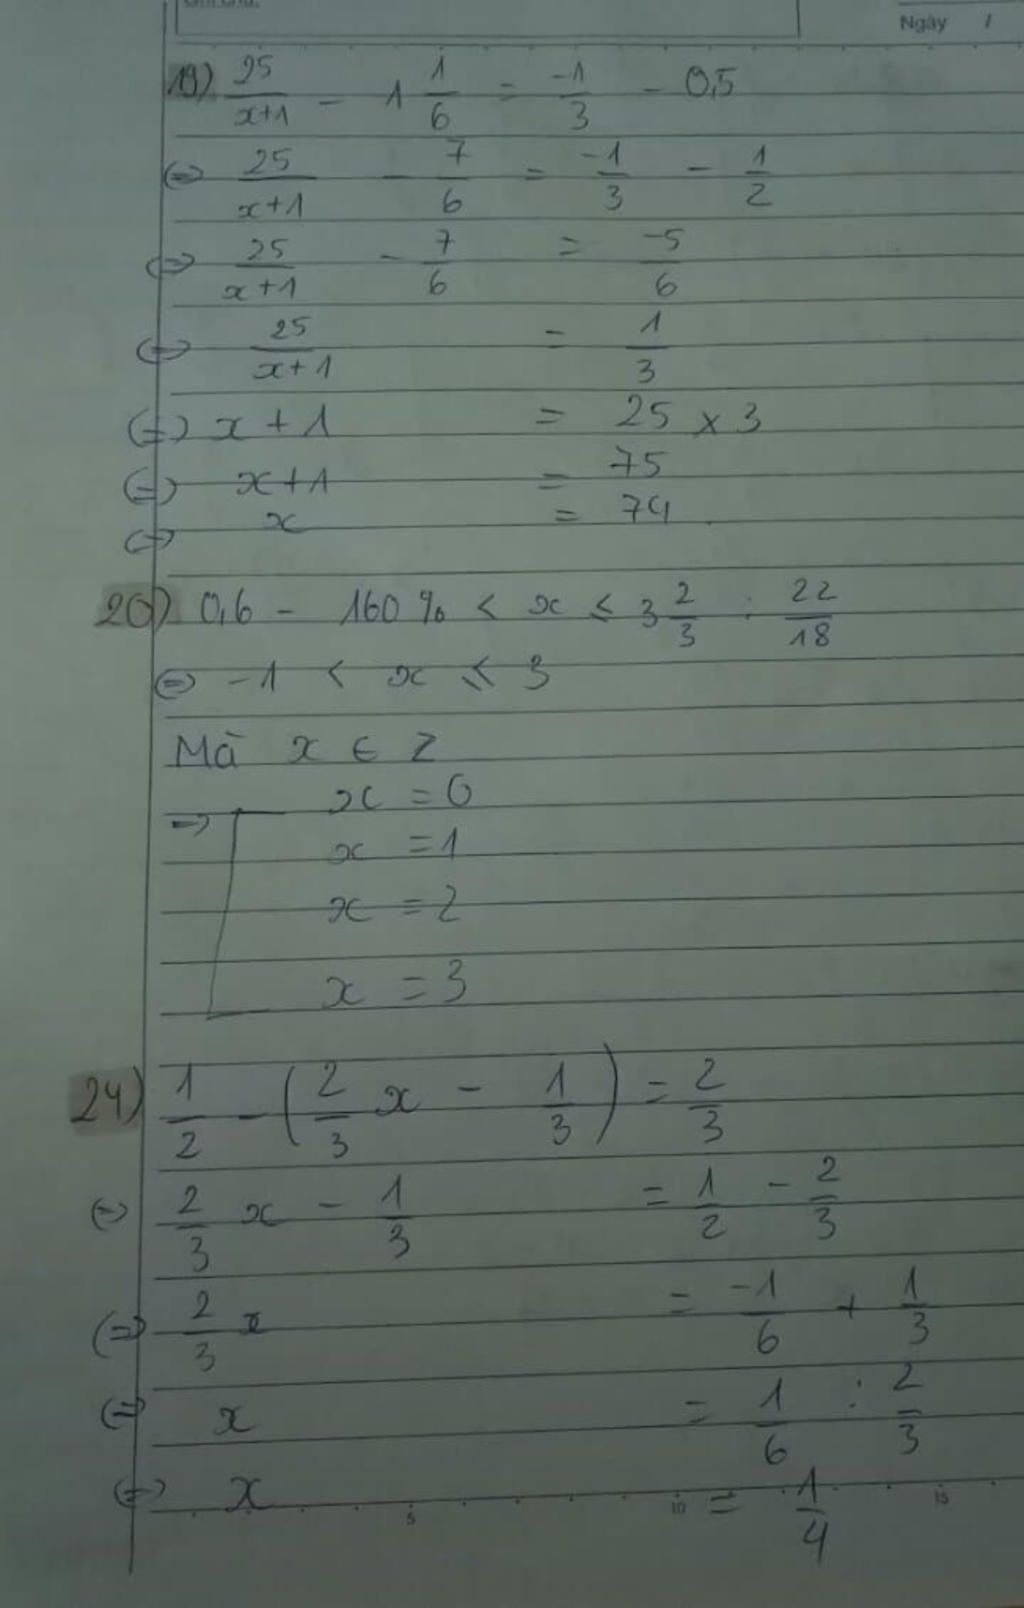 Ngày /
19) 25/(x+1) - 1 1/6 = -1/3 - 0,5
<=> 25/(x+1) - 7/6 = -1/3 - 1/2
<=> 25/(x+1) - 7/6 = -5/6
<=> 25/(x+1) = 1/3
<=> x + 1 = 25 × 3
<=> x+1 = 75
<=> x = 74
20) 0,6 - 160% < x ≤ 3 2/3 : 22/18
<=> -1 < x ≤ 3
Mà x ∈ Z
=> x = 0
x = 1
x = 2
x = 3
24) 1/2 - (2/3 x - 1/3) = 2/3
<=> 2/3 x - 1/3 = 1/2 - 2/3
<=> 2/3 x = -1/6 + 1/3
<=> x = 1/6 : 2/3
<=> x = 1/4
5 10 15